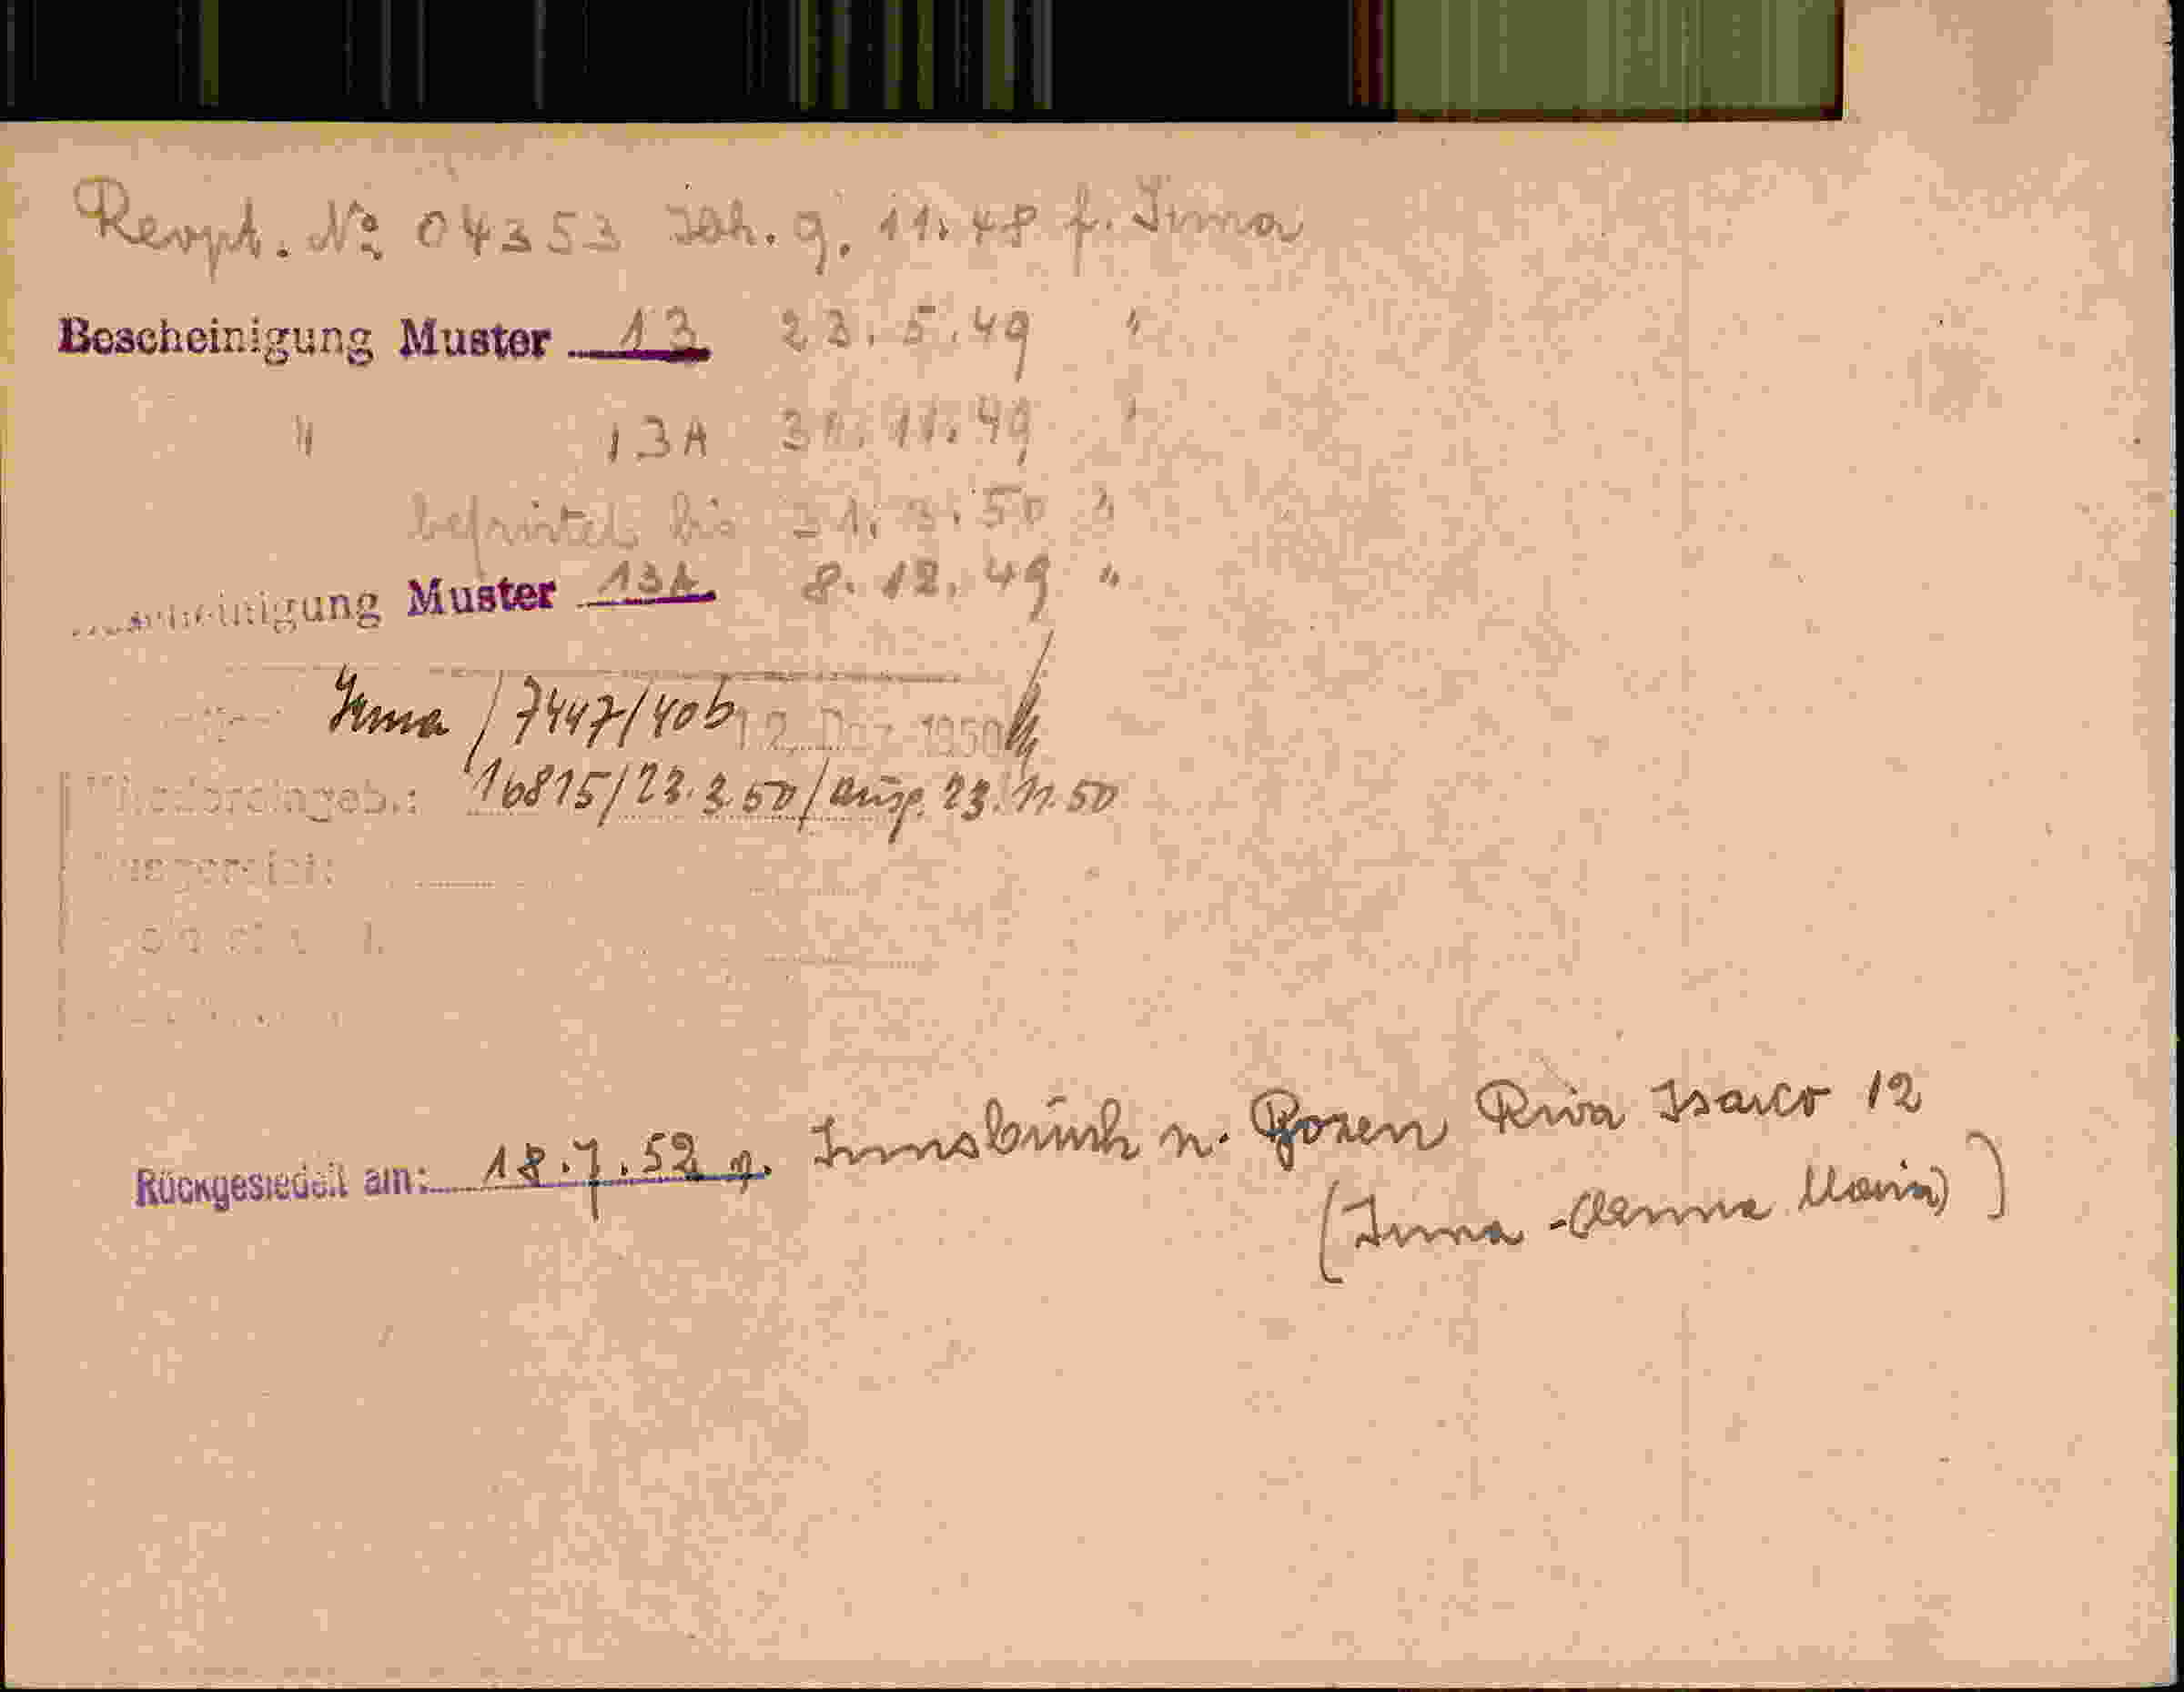 Revpt. № 04353 Joh. 9. 11. 48 f. Irma
Bescheinigung Muster 13 23. 5. 49 "
" 13A 30. 11. 49 "
befristet bis 31. 3. 50 "
Bescheinigung Muster 13A 8. 12. 49 "
Irma / 7447/40b 12. Dez. 1950
Wiedereingeb.: 16815/23. 3. 50/ausg. 23. 11. 50
Rückgesiedelt am: 18. 7. 52 v. Innsbruck n. Bozen Riva Isarco 12
(Irma - Anna Maria)